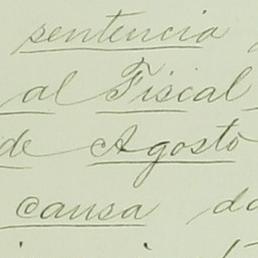 sentencia
al Fiscal
de Agosto
causa